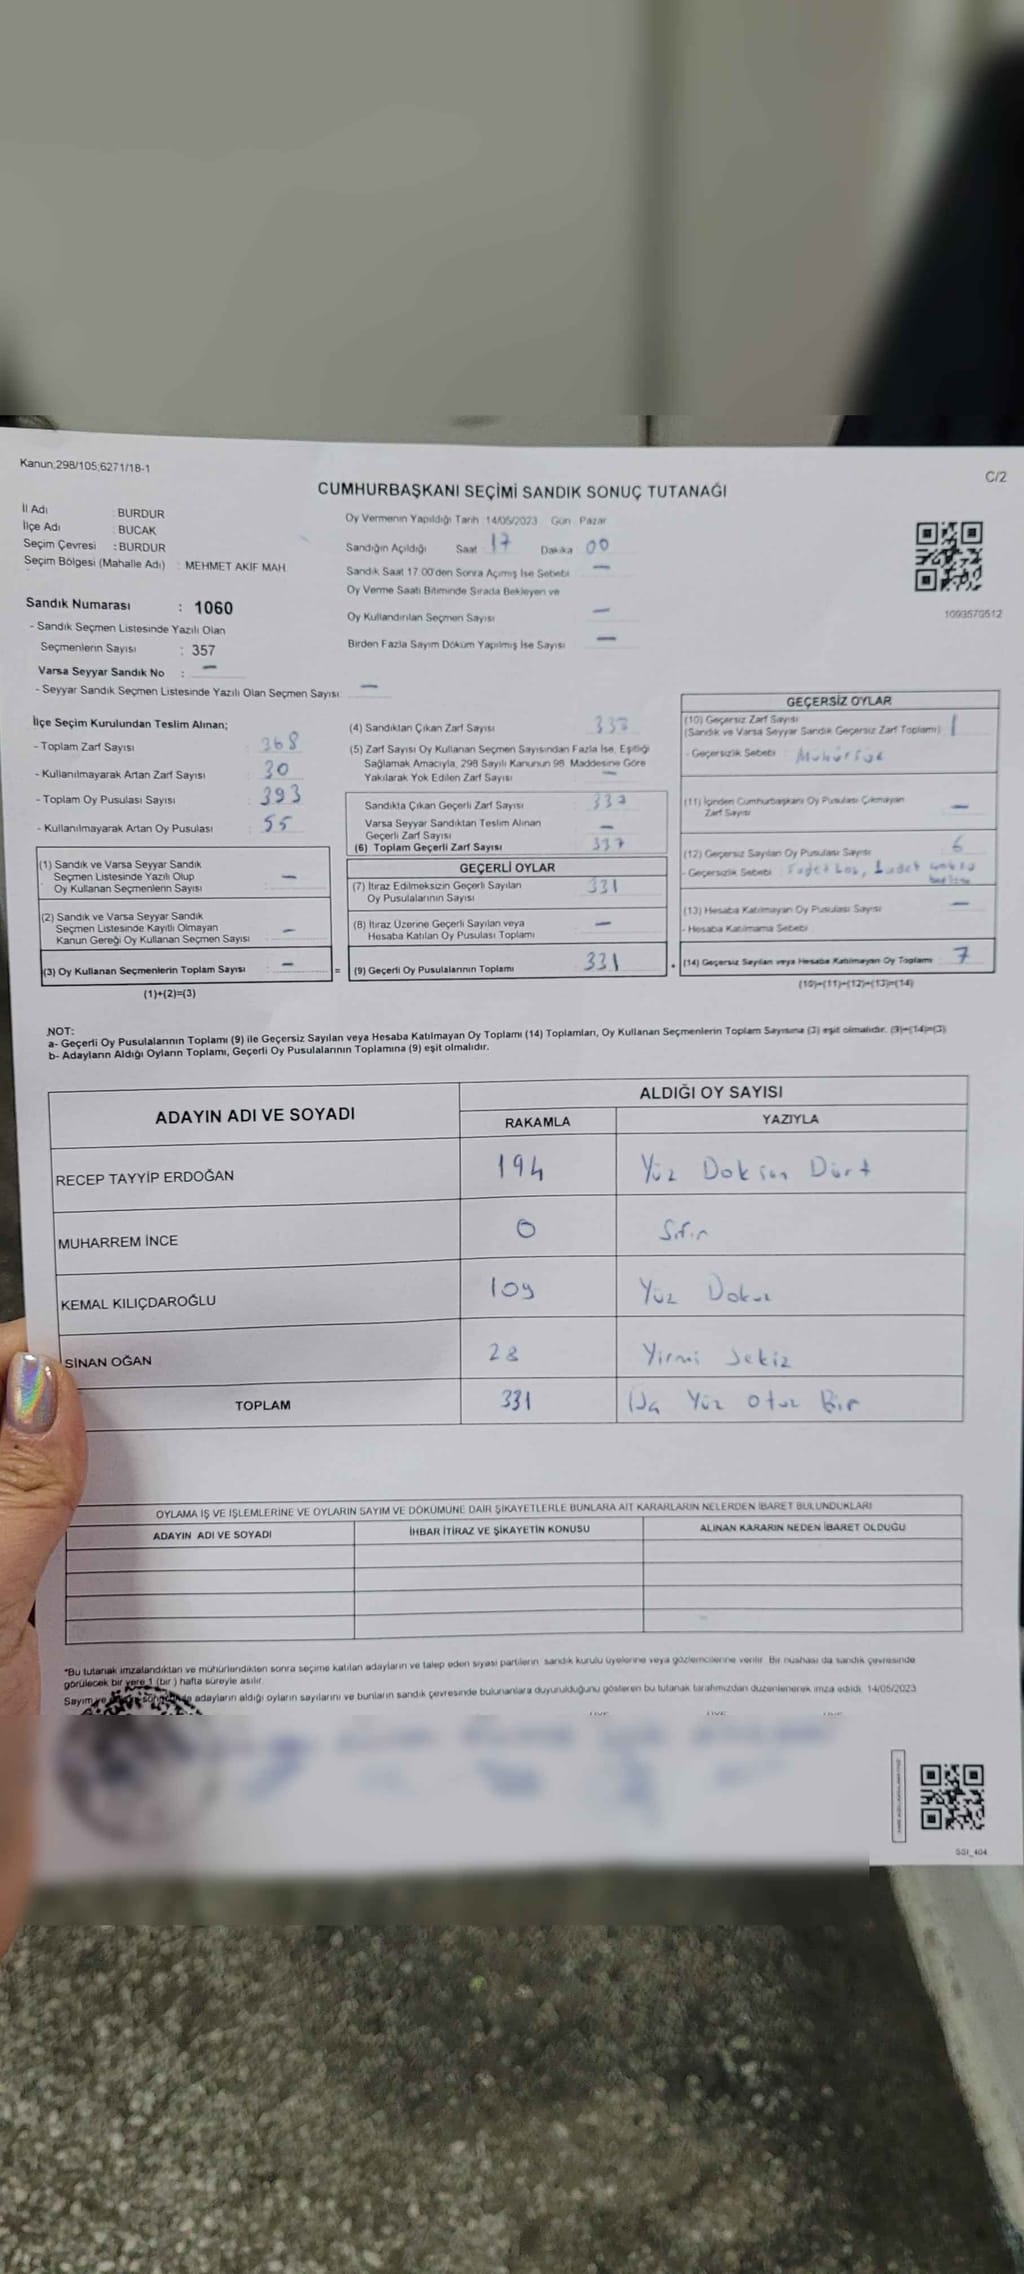 Kanun;298/105;6271/18-1
C/2
CUMHURBAŞKANI SEÇİMİ SANDIK SONUÇ TUTANAĞI
İl Adı : BURDUR
İlçe Adı : BUCAK
Seçim Çevresi : BURDUR
Seçim Bölgesi (Mahalle Adı) : MEHMET AKİF MAH
Sandık Numarası : 1060
- Sandık Seçmen Listesinde Yazılı Olan
Seçmenlerin Sayısı : 357
Varsa Seyyar Sandık No : —
- Seyyar Sandık Seçmen Listesinde Yazılı Olan Seçmen Sayısı: —
Oy Vermenin Yapıldığı Tarih :14/05/2023 Gün : Pazar
Sandığın Açıldığı Saat 17 Dakika 00
Sandık Saat 17.00'den Sonra Açımış İse Sebebi —
Oy Verme Saati Bitiminde Sırada Bekleyen ve
Oy Kullandırılan Seçmen Sayısı —
Birden Fazla Sayım Döküm Yapılmış İse Sayısı —
1093570512
İlçe Seçim Kurulundan Teslim Alınan;
- Toplam Zarf Sayısı : 368
- Kullanılmayarak Artan Zarf Sayısı : 30
- Toplam Oy Pusulası Sayısı : 393
- Kullanılmayarak Artan Oy Pusulası : 55
(1) Sandık ve Varsa Seyyar Sandık
Seçmen Listesinde Yazılı Olup
Oy Kullanan Seçmenlerin Sayısı : —
(2) Sandık ve Varsa Seyyar Sandık
Seçmen Listesine Kayıtlı Olmayan
Kanun Gereği Oy Kullanan Seçmen Sayısı : —
(3) Oy Kullanan Seçmenlerin Toplam Sayısı : — =
(1)+(2)=(3)
(4) Sandıktan Çıkan Zarf Sayısı :
(5) Zarf Sayısı Oy Kullanan Seçmen Sayısından Fazla İse, Eşitliği
Sağlamak Amacıyla, 298 Sayılı Kanunun 98. Maddesine Göre
Yakılarak Yok Edilen Zarf Sayısı : —
Sandıkta Çıkan Geçerli Zarf Sayısı : 337
Varsa Seyyar Sandıktan Teslim Alınan
Geçerli Zarf Sayısı : —
(6) Toplam Geçerli Zarf Sayısı : 337
GEÇERLİ OYLAR
(7) İtiraz Edilmeksizin Geçerli Sayılan
Oy Pusulalarının Sayısı : 331
(8) İtiraz Üzerine Geçerli Sayılan veya
Hesaba Katılan Oy Pusulası Toplamı : —
(9) Geçerli Oy Pusulalarının Toplamı : 331 +
GEÇERSİZ OYLAR
(10) Geçersiz Zarf Sayısı
(Sandık ve Varsa Seyyar Sandık Geçersiz Zarf Toplamı) : 1
- Geçersizlik Sebebi : Mühürsüz
(11) İçinden Cumhurbaşkanı Oy Pusulası Çıkmayan
Zarf Sayısı : —
(12) Geçersiz Sayılan Oy Pusulası Sayısı : 6
- Geçersizlik Sebebi :
(13) Hesaba Katılmayan Oy Pusulası Sayısı : —
- Hesaba Katılmama Sebebi :
(14) Geçersiz Sayılan veya Hesaba Katılmayan Oy Toplamı : 7
(10)+(11)+(12)+(13)=(14)
NOT:
a- Geçerli Oy Pusulalarının Toplamı (9) ile Geçersiz Sayılan veya Hesaba Katılmayan Oy Toplamı (14) Toplamları, Oy Kullanan Seçmenlerin Toplam Sayısına (3) eşit olmalıdır. (9)+(14)=(3)
b- Adayların Aldığı Oyların Toplamı, Geçerli Oy Pusulalarının Toplamına (9) eşit olmalıdır.
ADAYIN ADI VE SOYADI
ALDIĞI OY SAYISI
RAKAMLA YAZIYLA
RECEP TAYYİP ERDOĞAN 194 Yüz Doksan Dört
MUHARREM İNCE 0 Sıfır
KEMAL KILIÇDAROĞLU 109 Yüz Dokuz
SİNAN OĞAN 28 Yirmi Sekiz
TOPLAM 331 Yüz Otuz Bir
OYLAMA İŞ VE İŞLEMLERİNE VE OYLARIN SAYIM VE DÖKÜMÜNE DAİR ŞİKAYETLERLE BUNLARA AİT KARARLARIN NELERDEN İBARET BULUNDUKLARI
ADAYIN ADI VE SOYADI İHBAR İTİRAZ VE ŞİKAYETİN KONUSU ALINAN KARARIN NEDEN İBARET OLDUĞU
*Bu tutanak imzalandıktan ve mühürlendikten sonra seçime katılan adayların ve talep eden siyasi partilerin sandık kurulu üyelerine veya gözlemcilerine verilir. Bir nüshası da sandık çevresinde
görülecek bir yere 1 (bir ) hafta süreyle asılır.
adayların aldığı oyların sayılarını ve bunların sandık çevresinde bulunanlara duyurulduğunu gösteren bu tutanak tarafımızdan düzenlenerek imza edildi. 14/05/2023
SSI_404